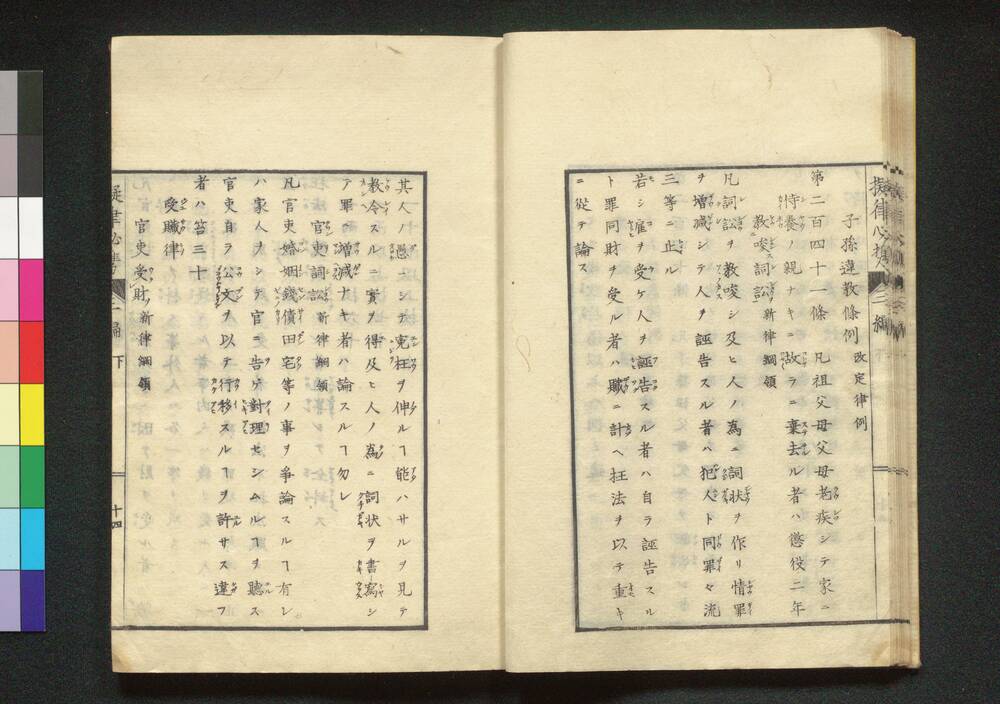 擬律必携 三編 下
子孫違教條例 改定律例
第二百四十一條 凡祖父母父母老疾シテ家ニ
侍養ノ親ナキニ故ラニ棄去ル者ハ懲役二年
教唆詞訟 新律綱領
凡詞訟ヲ教唆シ及ヒ人ノ為ニ詞状ヲ作リ情罪
ヲ増減シテ人ヲ誣告スル者ハ犯人ト同罪々流
三等ニ止ル
若シ雇ヲ受ケ人ヲ誣告スル者ハ自ラ誣告スル
ト罪同財ヲ受ル者ハ贓ニ計ヘ枉法ヲ以テ重キ
ニ従テ論ス
其人ノ愚ニシテ冤枉ヲ伸ルヿ能ハサルヲ見テ
教令スルニ實ヲ得及ヒ人ノ為ニ詞状ヲ書寫シ
テ罪ニ増減ナキ者ハ論スルヿ勿レ
官吏詞訟 新律綱領
凡官吏婚姻錢債田宅等ノ事ヲ爭論スルヿ有レ
ハ家人ヲシテ官ニ告ケ對理セシムルヿヲ聽ス
官吏自ラ公文ヲ以テ行移スルヿヲ許サス違フ
者ハ笞三十
受贓律
官吏受財 新律綱領
擬律必携 三編 下 十四